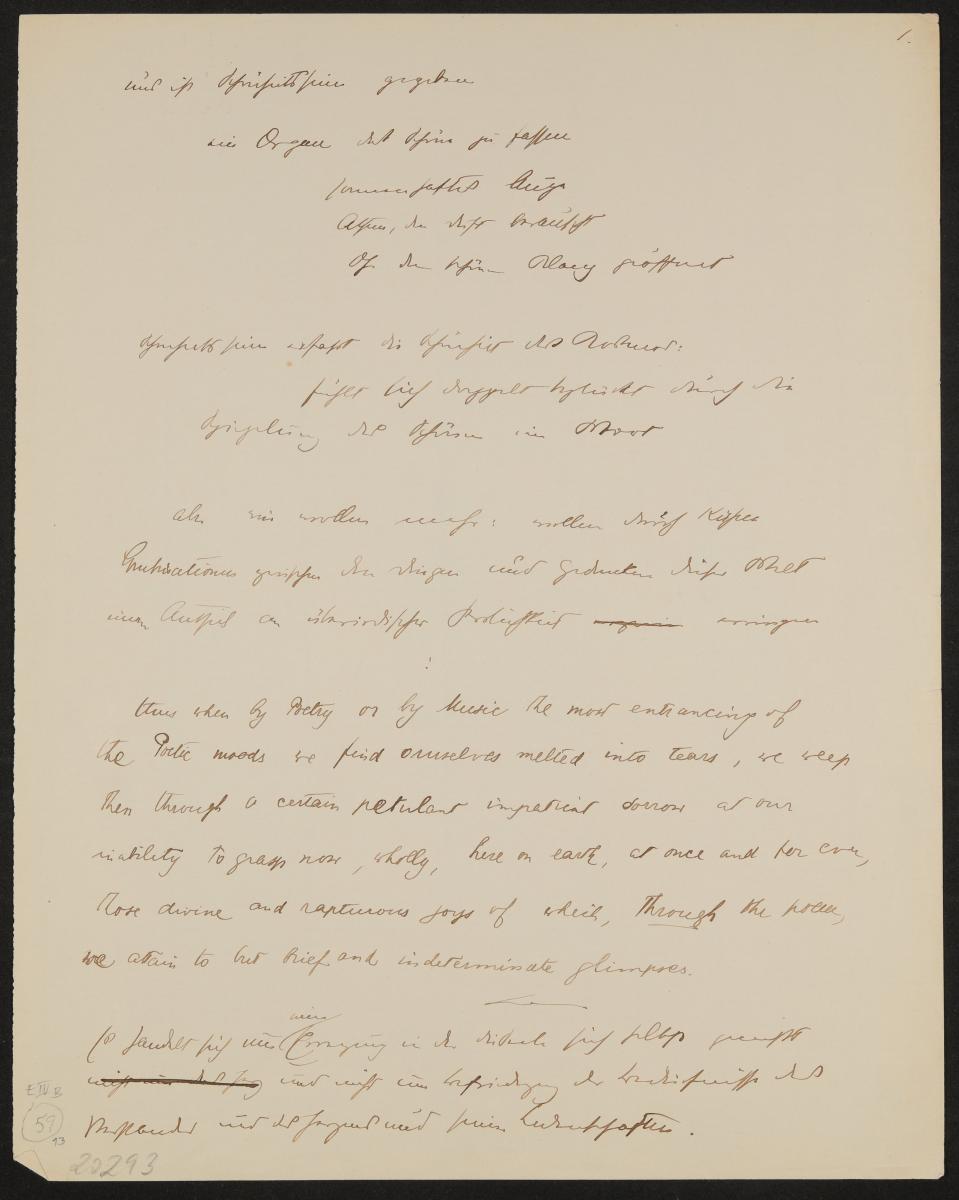 1.
uns ist Schönheitssinn gegeben
ein Organ das Schöne zu fassen
sonnenhaftes Auge
Athem, den Duft berauscht
Ohr dem schönen Klang geöffnet
Schönheitssinn erfasst die Schönheit der Natur:
fühlt sich doppelt beglückt durch die
Spiegelung des Schönen im Wort
aber wir wollen mehr: wollen durch
Combinationen zwischen den Dingen und Gedanken dieser Welt
einen Antheil an überirdischer erringen
:
thus when by Poetry or by Music the most entrancing of
the Poetic moods we find ourselves melted into tears, we weep
then through a certain petulant impatient sorrow at our
inability to grasp now, wholly, here on earth, at once and for ever,
those divine and rapturous joys of which, through the poem,
we attain to but brief and indeterminate glimpses.
Es handelt sich um eine Erregung in der die Seele sich selbst geniesst
und nicht um Befriedigung der Bedürfnisse des
Verstandes und des Herzens und seiner Leidenschaften.
E IV B
59
13
20293